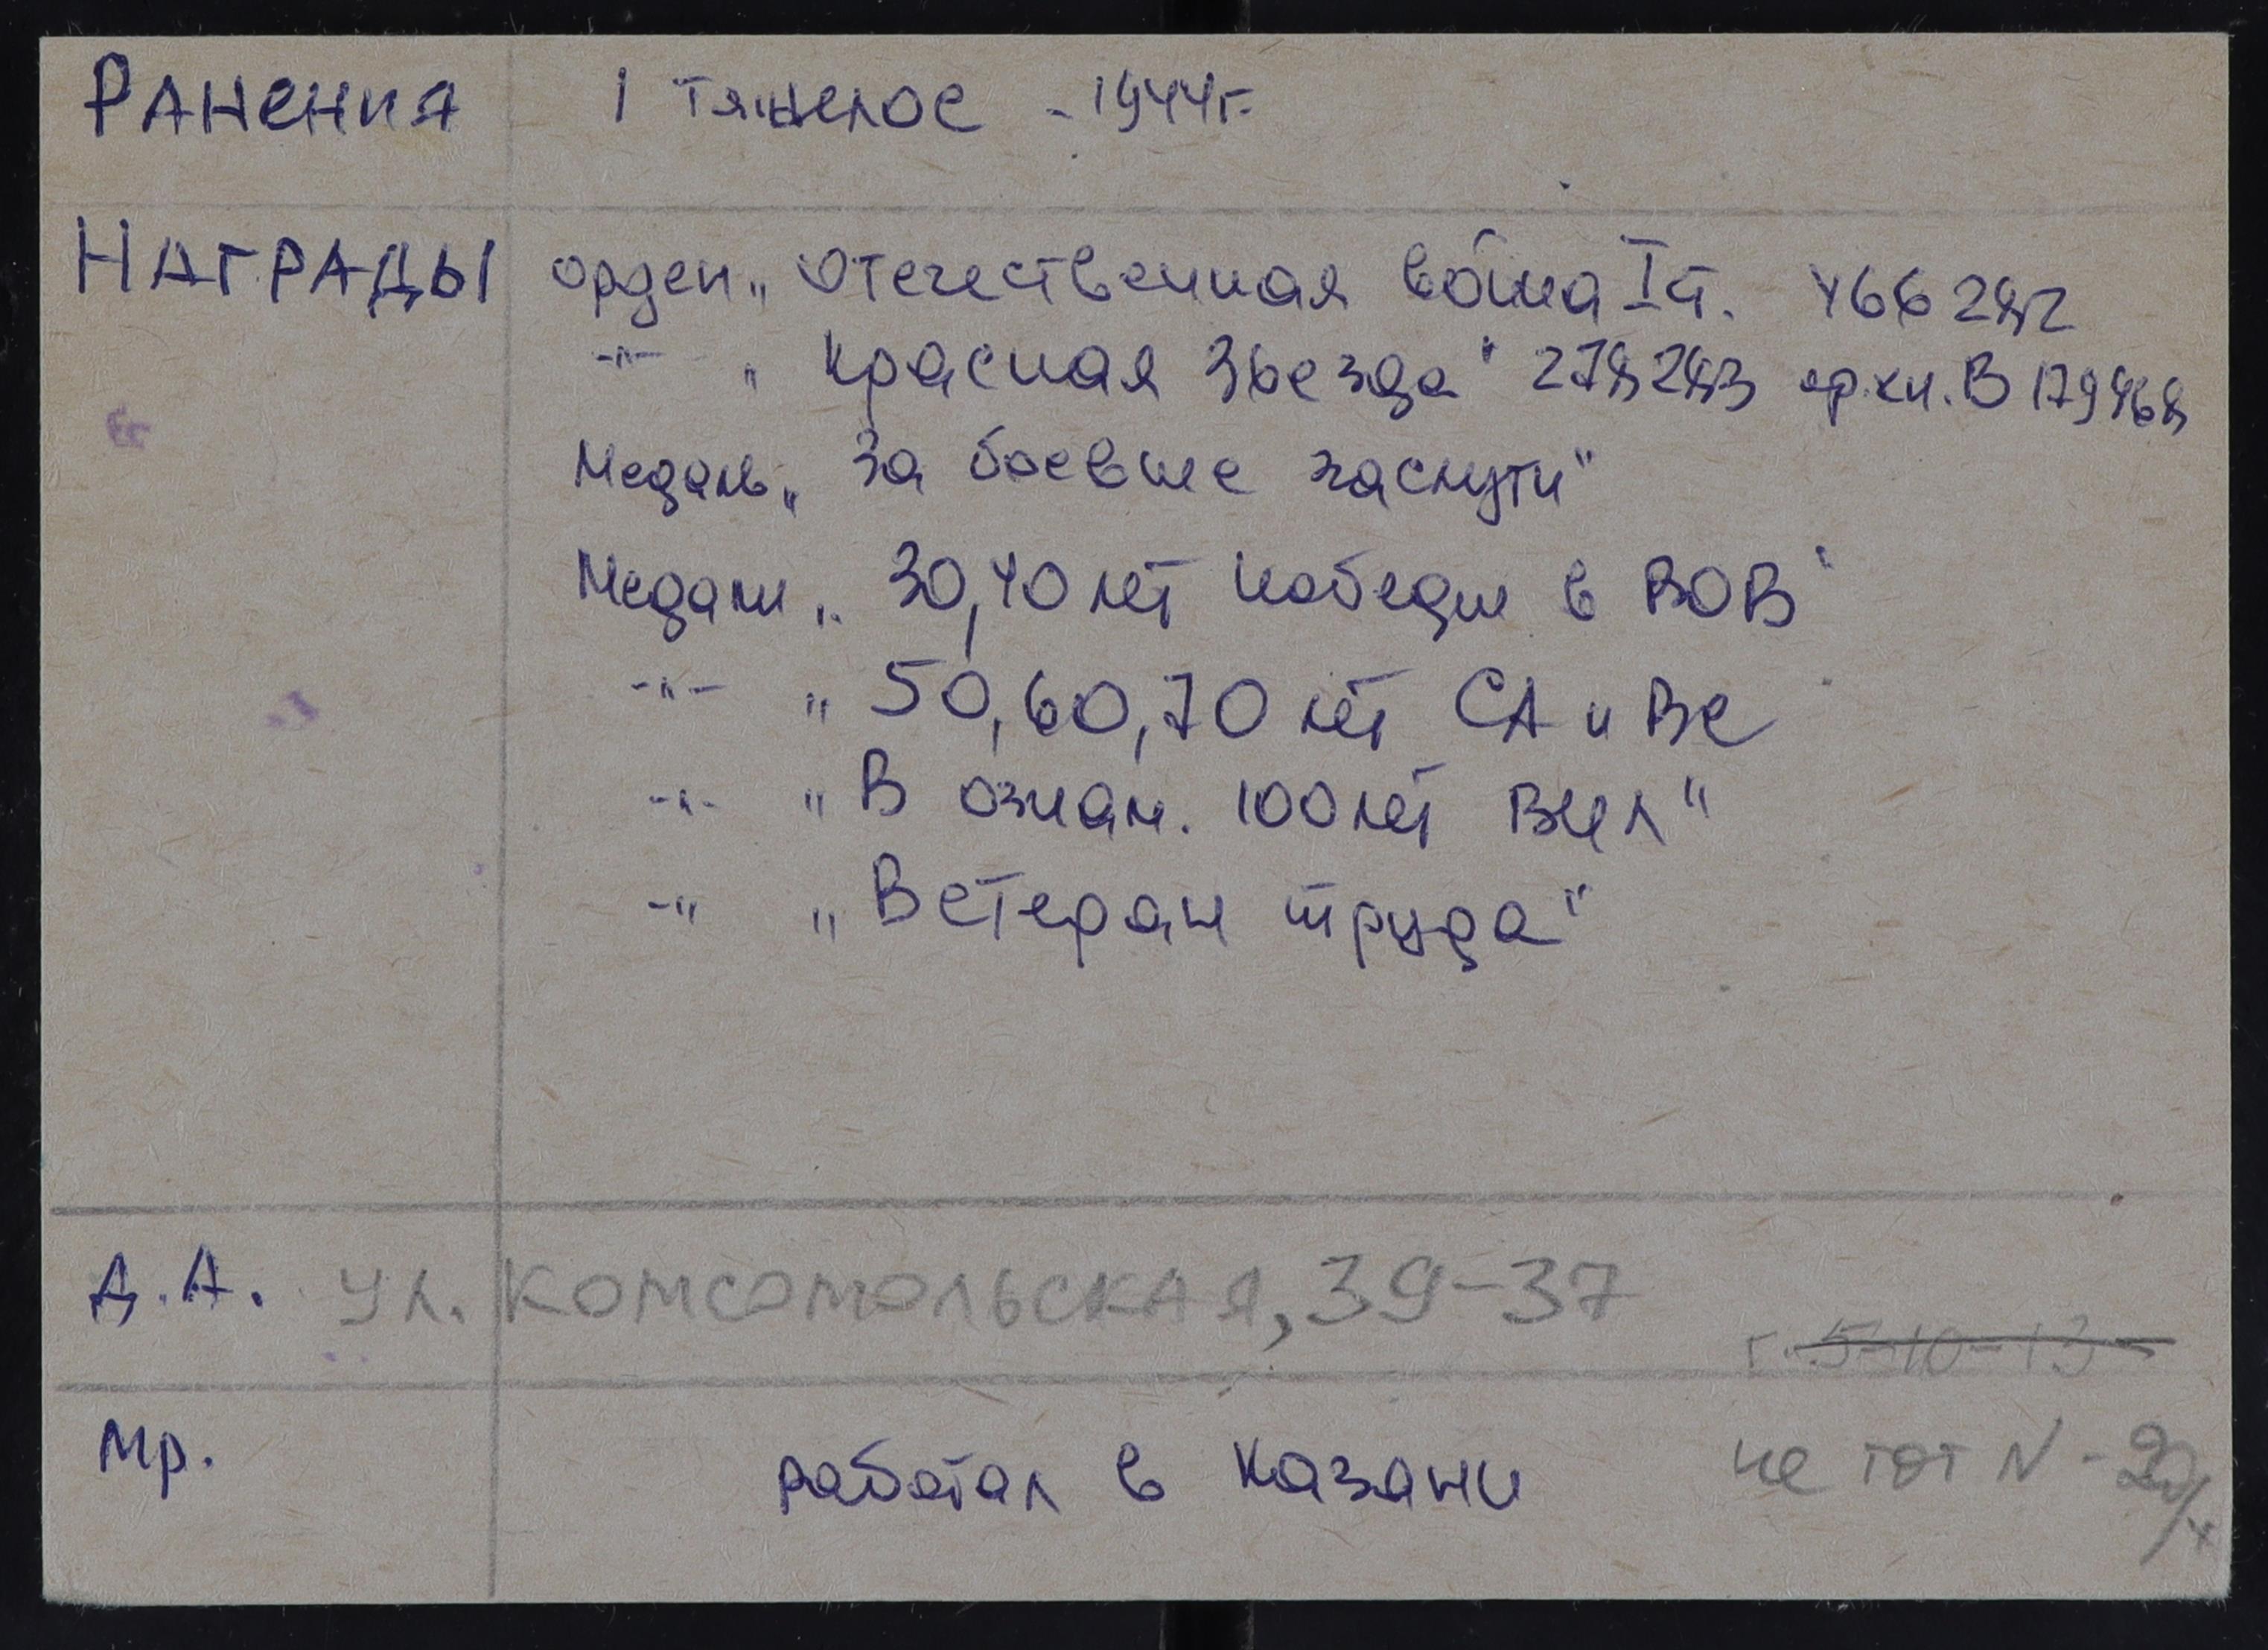 Ранения 1 тяжелое - 1944г.
Награды орден „Отечественная война I ст. 466282
-"- „Красная Звезда" 278283 ор.кн. В 179468
Медаль „За боевые заслуги"
Медали „30,40 лет Победы в ВОВ"
-"- „50,60,70 лет СА и ВС
-"- „В ознам. 100 лет ВИЛ"
-"- „Ветеран труда"
Д.А. ул. Комсомольская, 39-37
т. 5-10-13
Мр. работал в Казани не тот N -